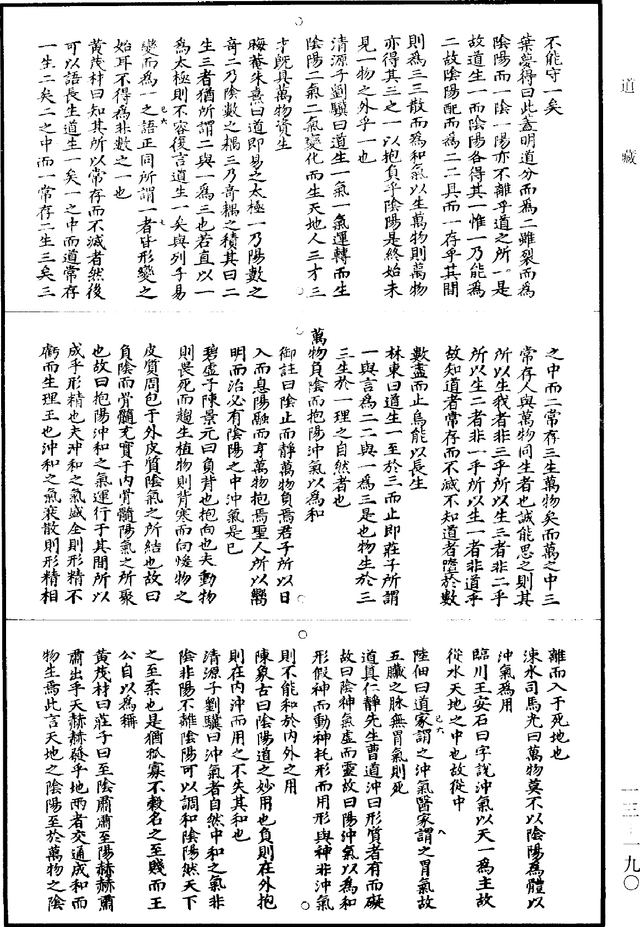 道藏
不能守一矣
葉夢得曰此蓋明道分而為二雖裂而為
陰陽而一陰一陽亦不離乎道之所一是
故道生一而陰陽各得其一惟一乃能為
二故陰陽配而為二二具而一存乎其間
則為三三散而為和氣以生萬物則萬物
亦得其三之一以抱負乎陰陽是終始未
見一物之外乎一也
清源子劉驥曰道生一氣一氣運轉而生
陰陽二氣二氣變化而生天地人三才三
才既具萬物資生
晦菴朱熹曰道即易之太極一乃陽數之
奇二乃陰數之耦三乃奇耦之積其曰二
生三者猶所謂二與一為三也若直以一
為太極則不容復言道生一矣與列子易
變而為一之語正同所謂一者皆形變之
始耳不得為非數之一也
黃茂材曰知其所以常存而不滅者然後
可以語長生道生一矣一之中而道常存
一生二矣二之中而一常存二生三矣三
之中而二常存三生萬物矣而萬之中三
常存人與萬物同生者也誠能思之則其
所以生我者非三乎所以生三者非二乎
所以生二者非一乎所以生一者非道乎
故知道者常存而不滅不知道者墮於數
數盡而止烏能以長生
林東曰道生一至於三而止即莊子所謂
一與言為二二與一為三是也物生於三
三生於一理之自然者也
萬物負陰而抱陽沖氣以為和
御註曰陰止而靜萬物負焉君子所以日
入而息陽融而亨萬物抱焉聖人所以嚮
明而治必有陰陽之中沖氣是已
碧虛子陳景元曰負背也抱向也夫動物
則畏死而趨生植物則背寒而向煖物之
皮質周包于外皮質陰氣之所結也故曰
負陰而骨髓充實于內骨髓陽氣之所聚
也故曰抱陽沖和之氣運行于其間所以
成乎形精也夫沖和之氣盛全則形精不
虧而生理王也沖和之氣衰散則形精相
離而入于死地也
涑水司馬光曰萬物莫不以陰陽為體以
沖氣為用
臨川王安石曰字說沖氣以天一為主故
從水天地之中也故從中
陸佃曰道家謂之沖氣醫家謂之胃氣故
五臟之脉無胃氣則死
道真仁靜先生曹道沖曰形質者有而礙
故曰陰神氣虛而靈故曰陽沖氣以為和
形假神而動神托形而用形與神非沖氣
則不能和於內外之用
陳象古曰陰陽道之妙用也負則在外抱
則在內沖而用之不失其和也
清源子劉驥曰沖氣者自然中和之氣非
陰非陽不離陰陽可以調和陰陽然天下
之至柔也是猶孤寡不穀名之至賤而王
公自以為稱
黃茂材曰莊子曰至陰肅肅至陽赫赫肅
肅出乎天赫赫發乎地兩者交通成和而
物生焉此言天地之陰陽至於萬物之陰
一三－一九〇